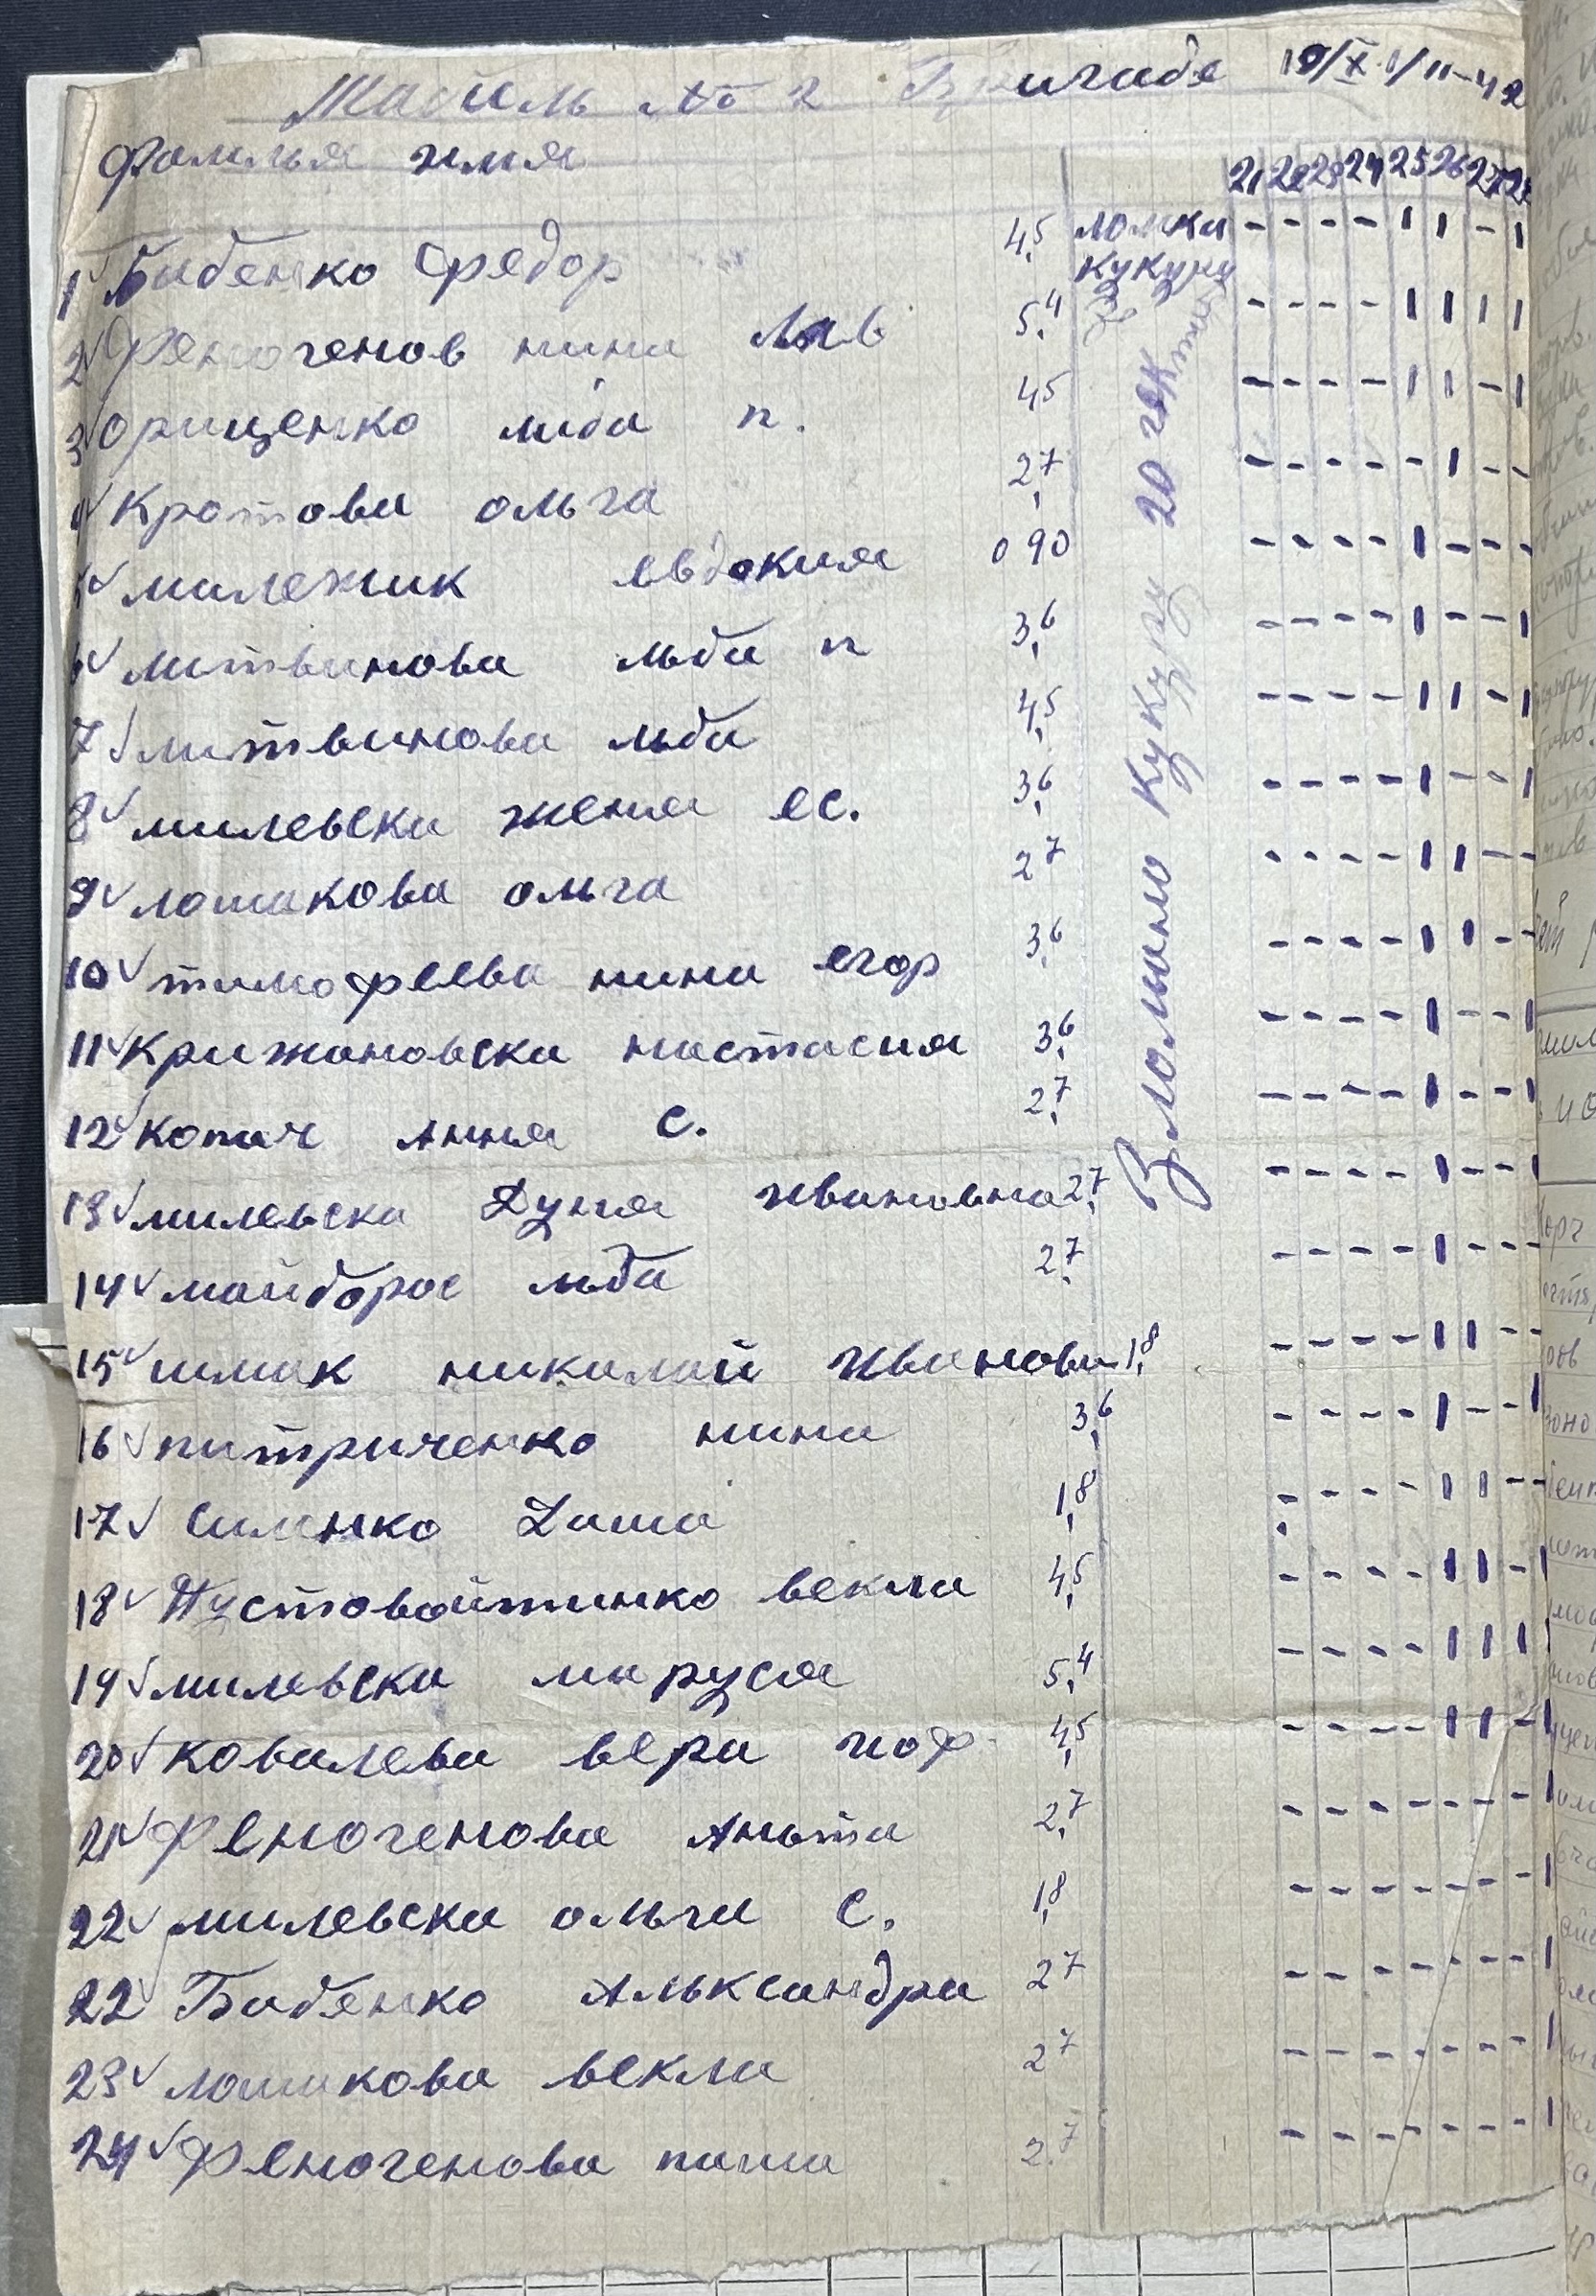 Табиль № 2 Бригаде 19/X 1/11-42
Фамилья имя 21 22 23 24 25 26 27 28
1 Бабенко Федор 4,5 ломки - - - - | | - |
кукуру
2 Феногенов нина 5,4 - - - - | | | |
3 Орищенко люба п. 4,5 - - - - | | - |
4 Кротова ольга 2,7 - - - - - | - -
милежик евдокия 0 90 - - - - | - - -
6 литвинова люба п 3,6 - - - - | - - |
7 литвинова люба 4,5 - - - - | | - |
8 милевска женя ес. 3,6 - - - - | - - |
9 лошакова ольга 2,7 - - - - | | - -
10 тимофеева нина егор 3,6 - - - - | | - -
11 Крижановска настасия 3,6 - - - - | - - |
12 копач Анна С. 2,7 - - - - | - - |
13 милевска Дуня ивановна 2,7 - - - - | - - |
14 майборос люба 2,7 - - - - | - - -
15 шмак николай иванови 1,8 - - - - | | - -
16 питриченко нина 3,6 - - - - | - - |
17 Симинко Даша 1,8 - - - - | | - -
18 Пустовойтинко векла 4,5 - - - - | | - |
19 милевска маруся 5,4 - - - - | | | |
20 ковалева вера 4,5 - - - - | | - |
21 Феногенова Анюта 2,7 - - - - - - - |
22 милевска ольга С. 1,8 - - - - - - - |
22 Бабенко Альксандра 2,7 - - - - - - - |
23 лошакова векла 2,7 - - - - - - - |
24 Феногенова паша 2,7 - - - - - - - |
Вломано кукурузу 20 гект